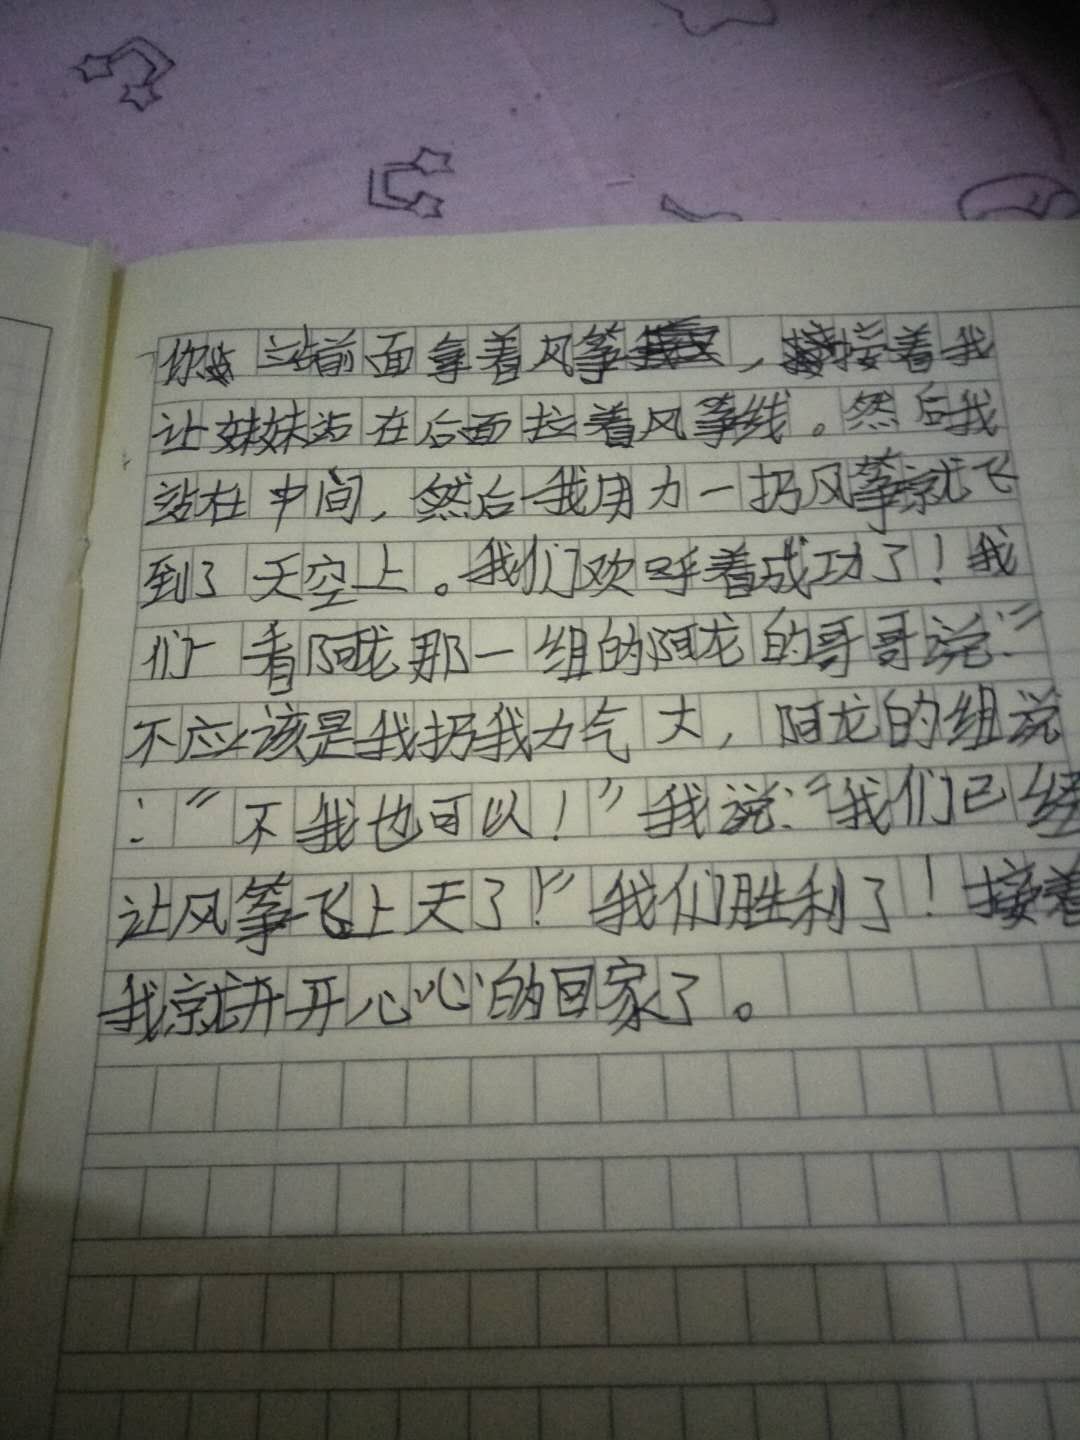 你站前面拿着风筝，接着我
让妹妹站在后面拉着风筝线。然后我
站在中间，然后我用力一扔风筝就飞
到了天空上。我们欢呼着成功了！我
们看阿龙那一组的阿龙的哥哥说：“
不应该是我扔我力气大，阿龙的组说
：“不我也可以！”我说：“我们已经
让风筝飞上天了！”我们胜利了！接着
我就开开心心的回家了。